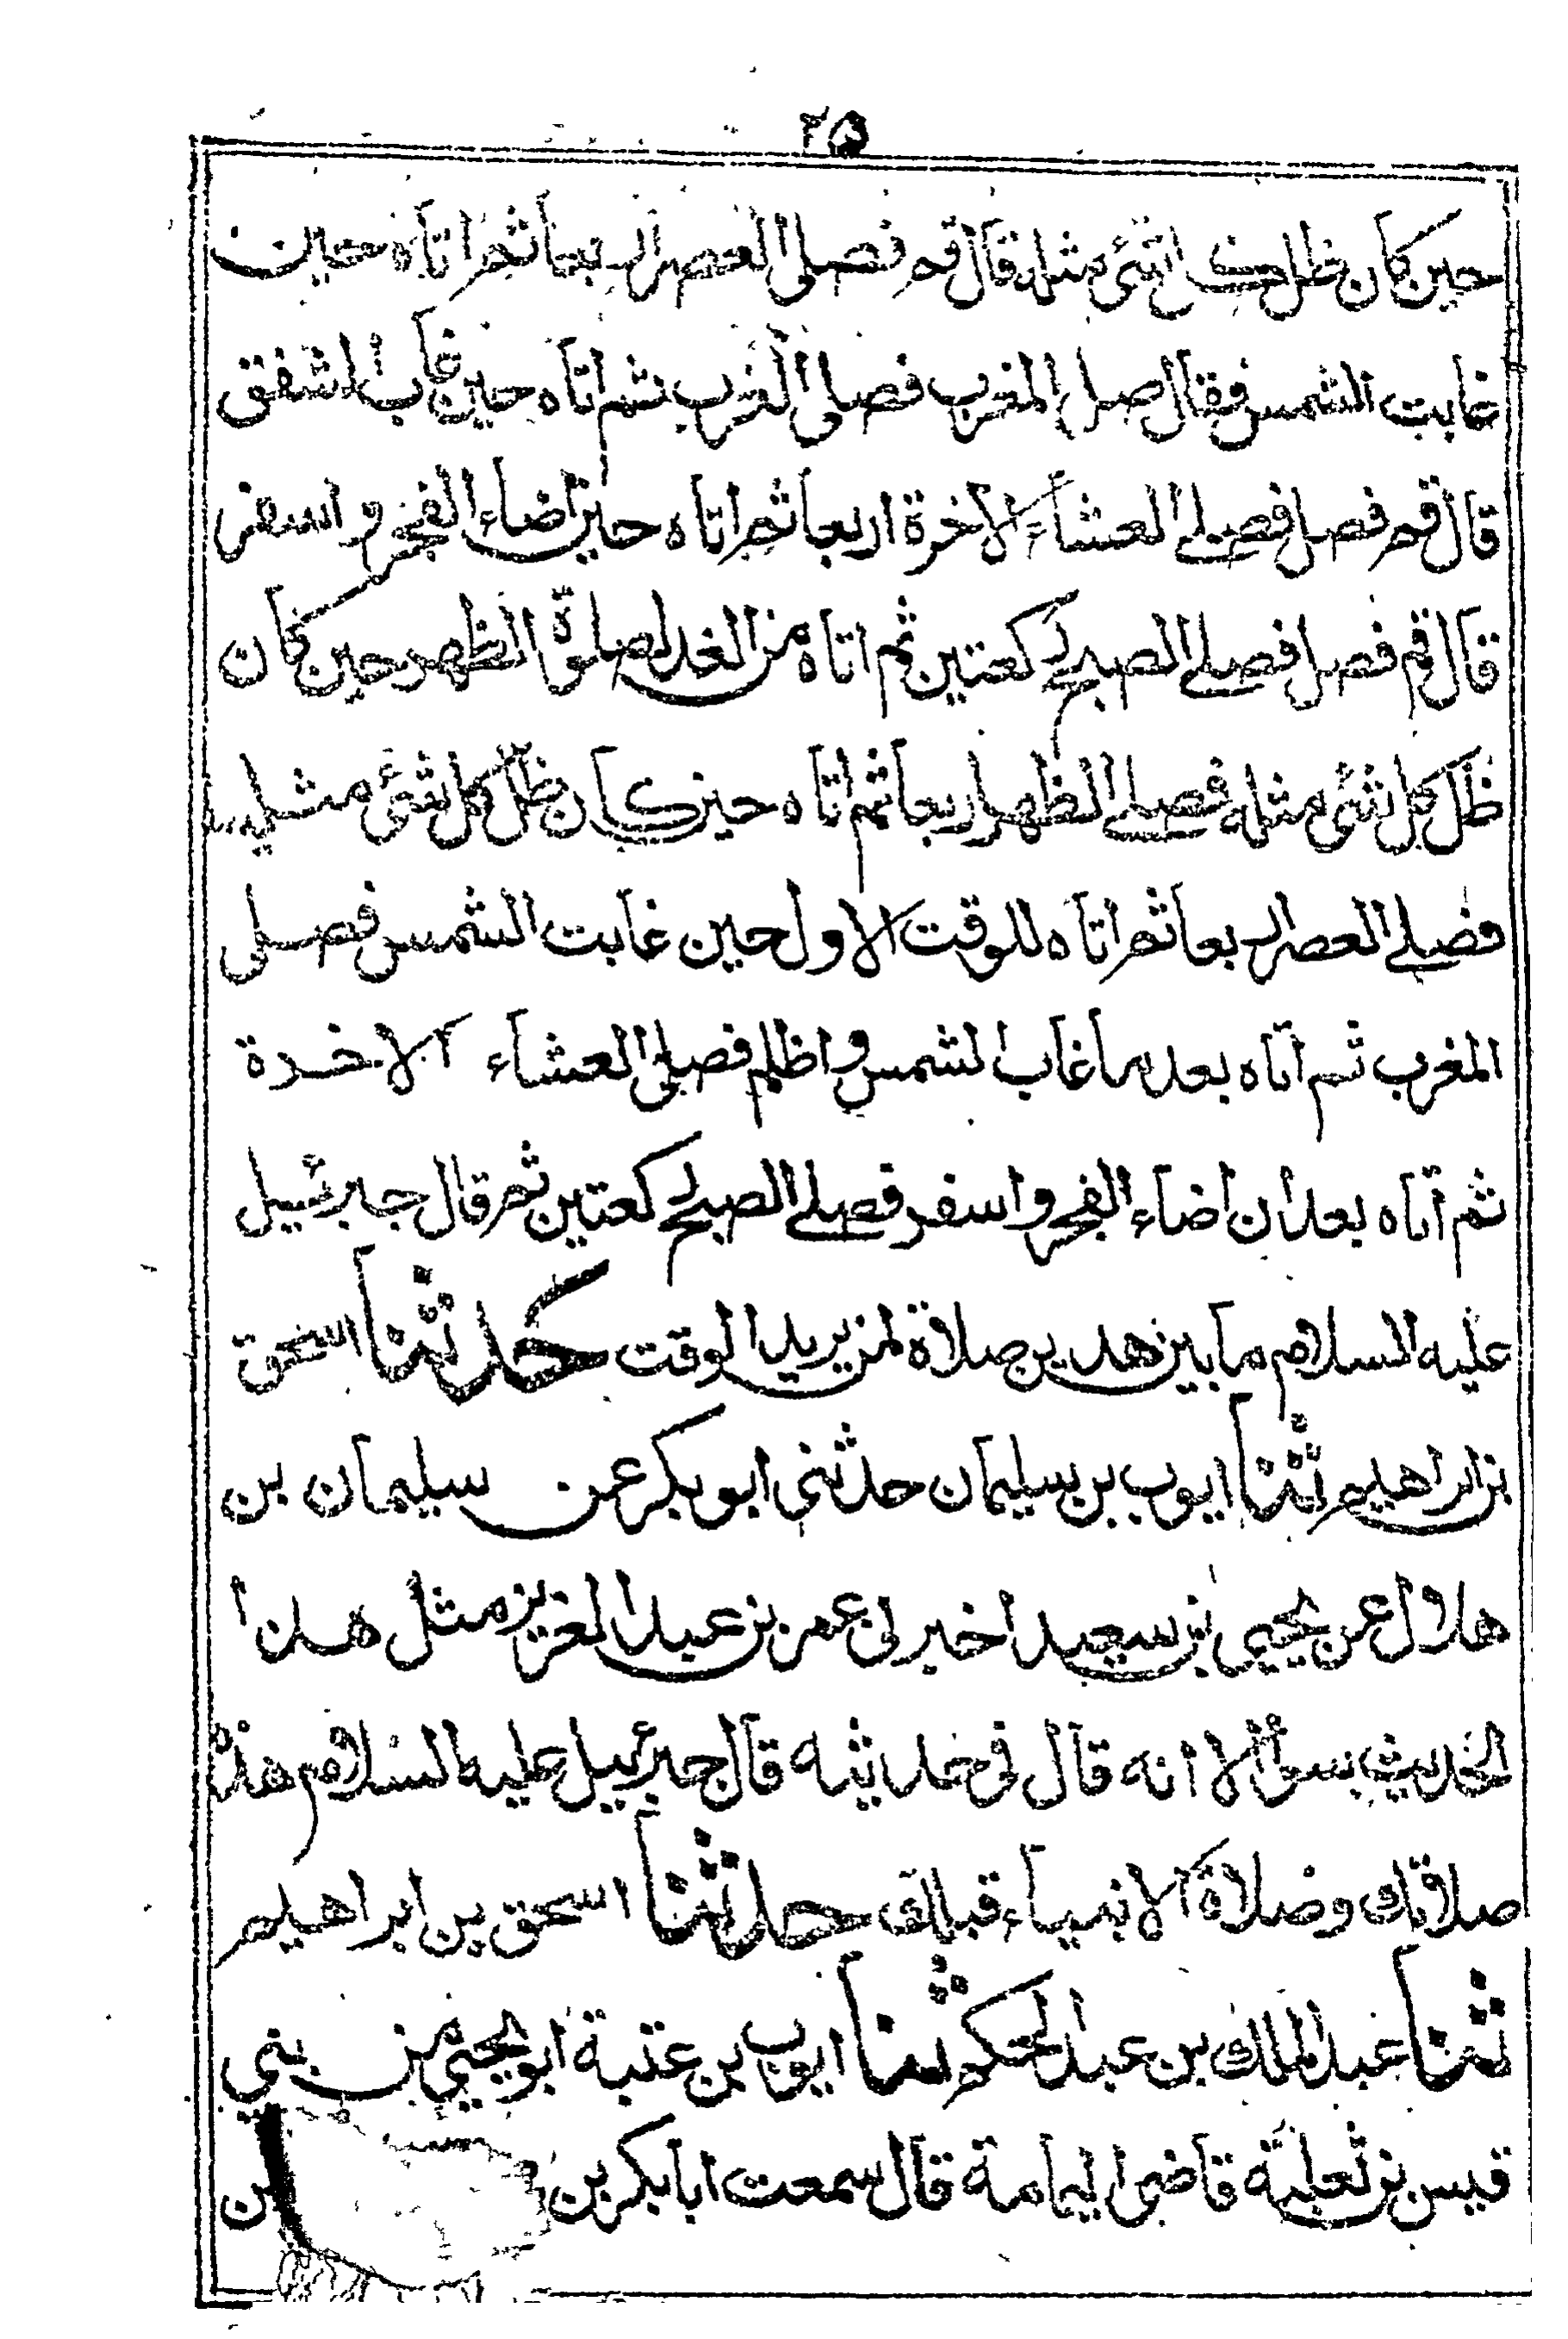 ٢٥
حين كان ظل كل شئ مثله قال قم فصلى العصر اربعا ثم اتاه حين
غابت الشمس فقال صل المغرب فصلى المغرب ثم اتاه حين غاب الشفق
قال قم فصل فصلى العشاء الاخرة اربعا ثم اتاه حين اضاء الفجر واسفر
قال قم فصل فصلى الصبح ركعتين ثم اتاه من الغد لصلوة الظهر حين كان
ظل كل شئ مثله فصلى الظهر اربعا ثم اتاه حين كان ظل كل شئ مثليه
فصلى العصر اربعا ثم اتاه للوقت الاول حين غابت الشمس فصلى
المغرب ثم اتاه بعد ما غاب الشمس واظلم فصلى العشاء الاخرة
ثم اتاه بعد ان اضاء الفجر واسفر فصلى الصبح ركعتين ثم قال جبرئيل
عليه السلام ما بين هذين صلاة لمن يريد الوقت حدثنا اسحق
بن ابراهيم ثنا ايوب بن سليمان حدثنى ابو بكر عن سليمان بن
هلال عن يحيى بن سعيد اخبرنى عمر بن عبد العزيز مثل هذا
الحديث سواء الا انه قال فى حديثه قال جبرئيل عليه السلام هذه
صلاتك وصلاة الانبياء قبلك حدثنا اسحق بن ابراهيم
ثنا عبد الملك بن عبد الحكم ثنا ايوب بن عتبة ابو يحيى من بني
قيس بن ثعلبة قاضى اليمامة قال سمعت ابا بكر بن بن